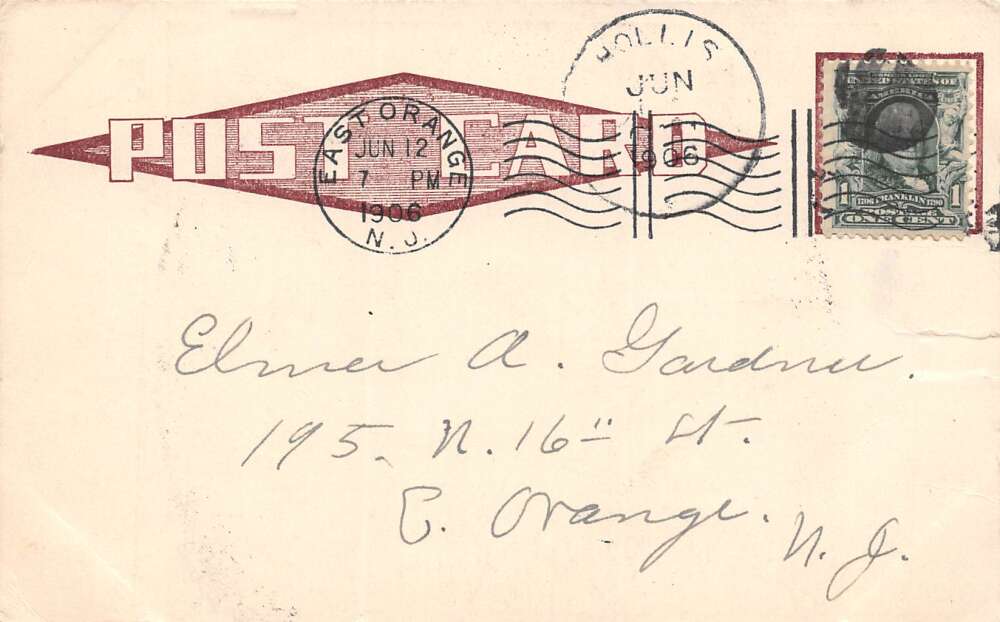 POST CARD
EAST ORANGE
JUN 12
7 PM
1906
N. J.
HOLLIS
JUN
1906
UNITED STATES OF
AMERICA
1 1706 FRANKLIN 1790 1
POSTAGE
ONE CENT
Elmer A. Gardner.
195. N. 16" St.
E. Orange.
N. J.